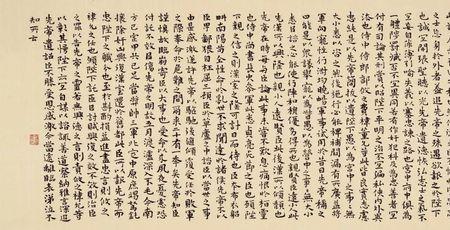 之士忘身於外者蓋追先帝之殊遇欲報之於陛下
也誠宜開張聖聽以光先帝遺德恢弘志士之氣不
宜妄自菲薄引喻失義以塞忠諫之路也宮中府中俱為
一體陟罰臧否不宜異同若有作姦犯科及為忠善者宜
付有司論其刑賞以昭陛下平明之治不宜偏私使內外異
法也侍中侍郎郭攸之費禕董允等此皆良實志慮
忠純是以先帝簡拔以遺陛下愚以為宮中之事事無
大小悉以咨之然後施行必能裨補闕漏有所廣益將
軍向寵性行淑均曉暢軍事試用於昔日先帝稱之
曰能是以眾議舉寵為督愚以為營中之事事無小
大悉以咨之必能使行陣和睦優劣得所也親賢臣遠小人此
先漢所以興隆也親小人遠賢臣此後漢所以傾頹也
先帝在時每與臣論此事未嘗不歎息痛恨於桓靈
也侍中尚書長史參軍此悉貞亮死節之臣也願陛
下親之信之則漢室之隆可計日而待也臣本布衣躬
耕南陽苟全性命於亂世不求聞達於諸侯先帝不以
臣卑鄙猥自枉屈三顧臣於草廬之中諮臣以當世之事
由是感激遂許先帝以驅馳後值傾覆受任於敗軍
之際奉命於危難之間爾來二十有一年矣先帝知臣
謹慎故臨崩寄臣以大事也受命以來夙夜憂慮恐
付託不效以傷先帝之明故五月渡瀘深入不毛今南
方已定甲兵已足當獎帥三軍北定中原庶竭駑鈍
攘除奸凶興復漢室還於舊都此臣所以報先帝而
忠陛下之職分也至於斟酌損益進盡忠言則攸之
禕允之任也願陛下託臣以討賊興復之效不效則治臣
之罪以告先帝之靈若無興德之言則責攸之禕允等
以彰其慢陛下亦宜自謀以諮諏善道察納雅言深追
先帝遺詔臣不勝受恩感激今當遠離臨表涕泣不
知所云